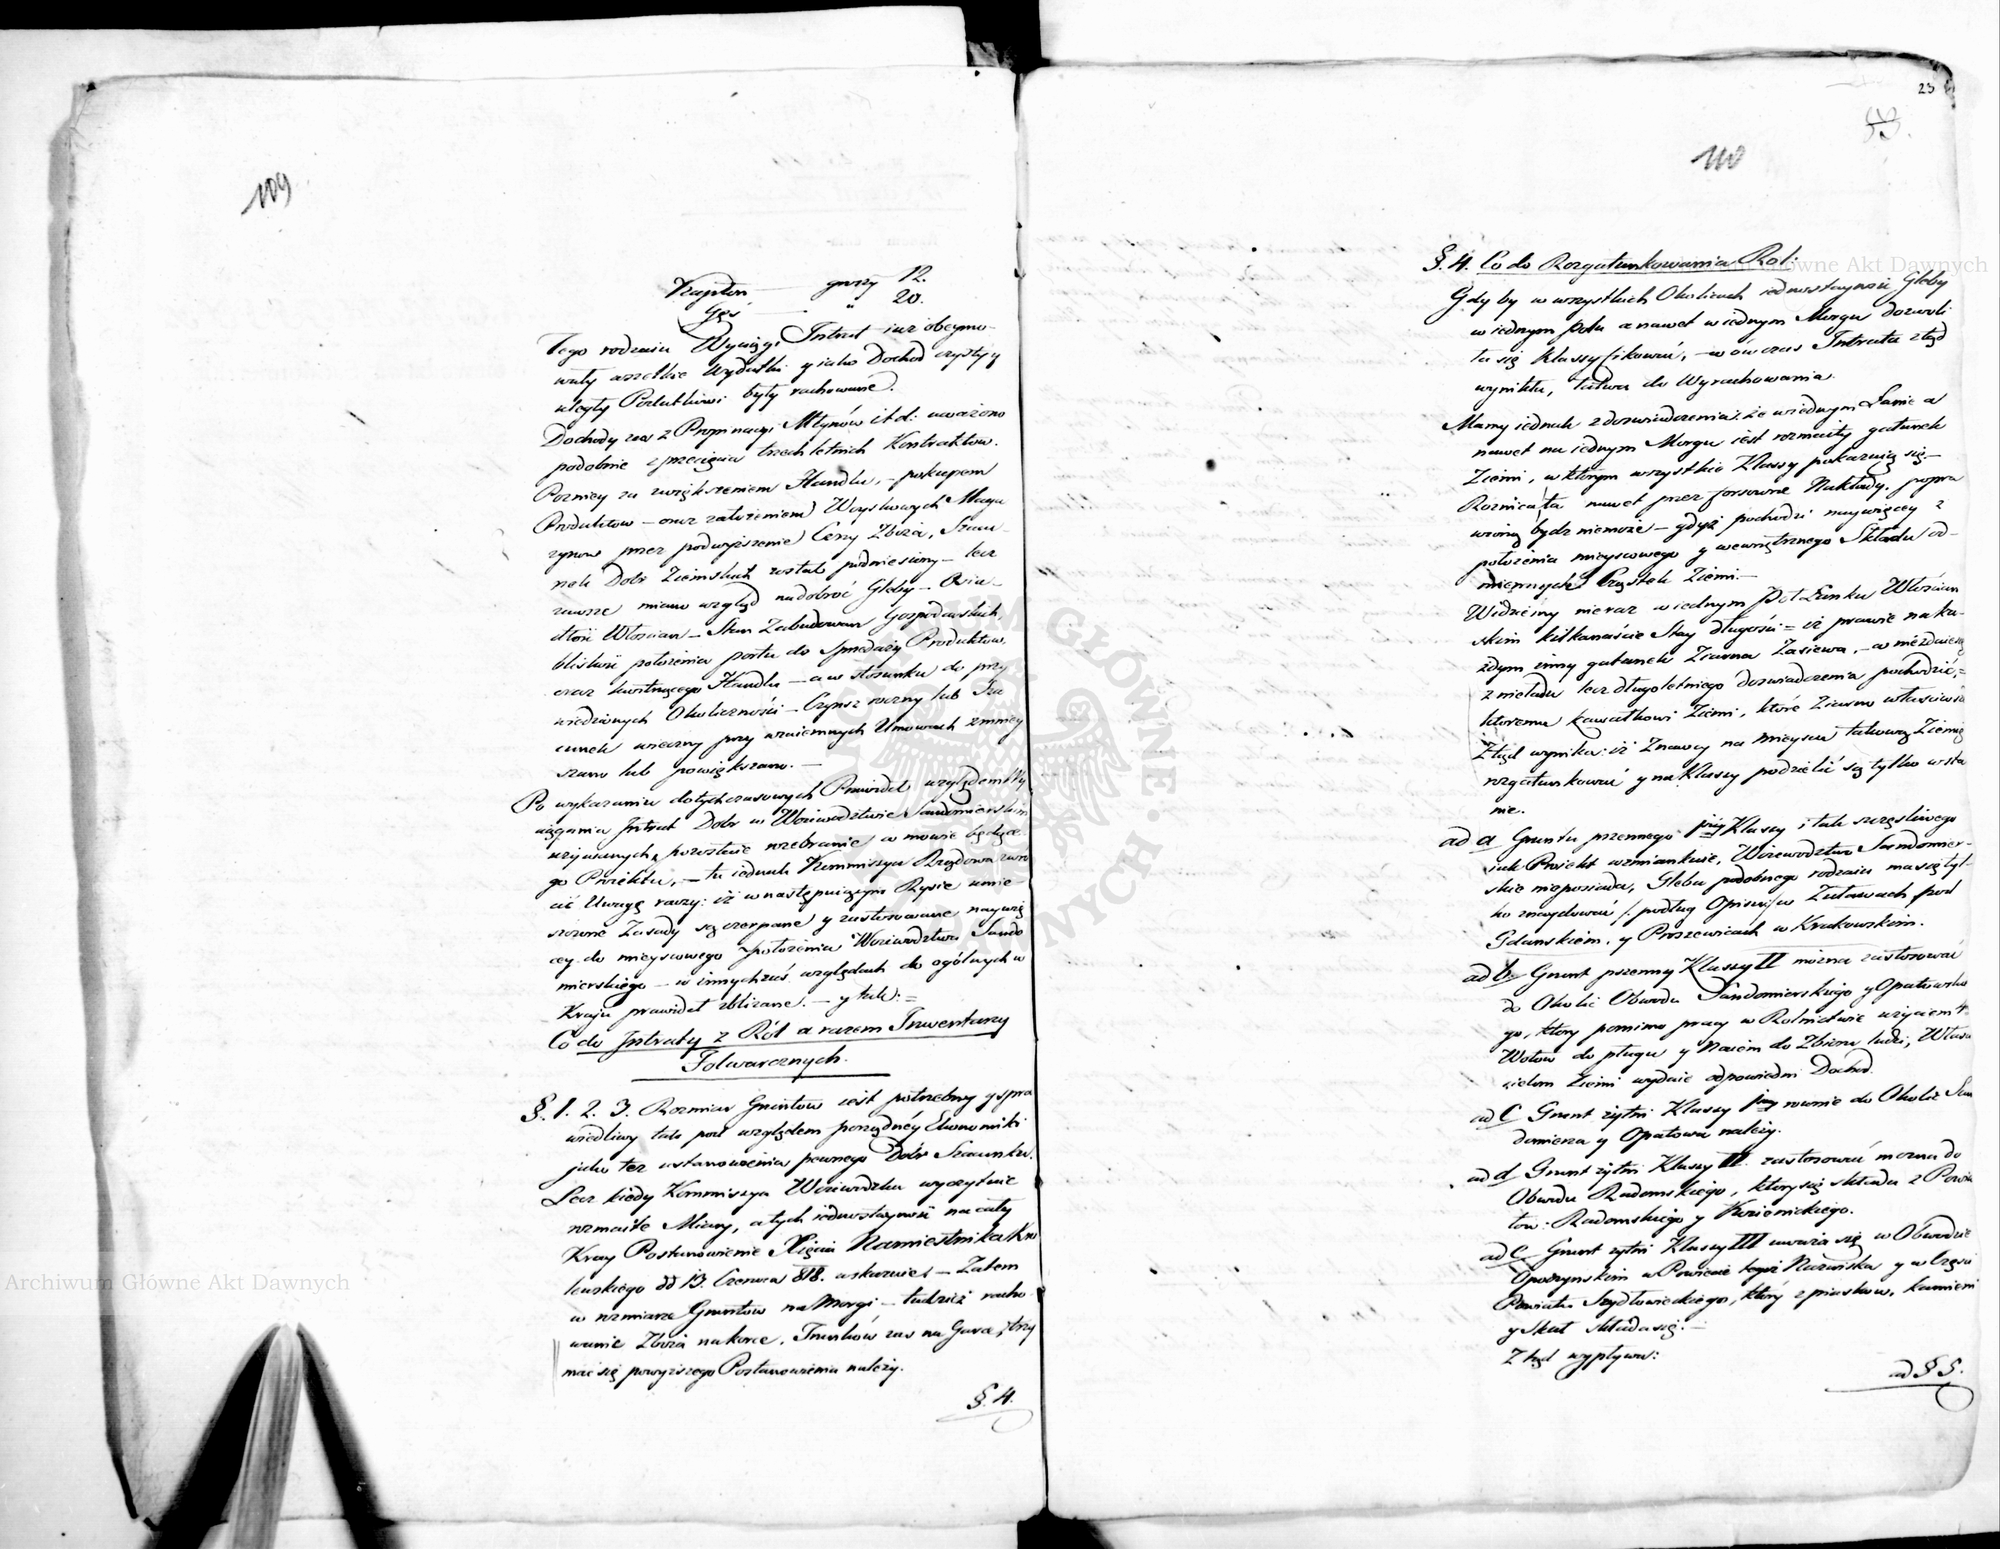 109
Kapłon — groszy 12.
Gęś — " 20.
Tego rodzaju Wyciągi Intrat już obeymo-
wały wszelkie Wydatki y iako Dochod czysty y
uległy Podatkowi były rachowane.
Dochody zas z Propinacyi Młynów i t d: uważono
podobnie z przecięcia trzechletnich Kontraktow.
Pozniey za zwiększeniem Handlu, — pokupem
Produktow — oraz założeniem Woyskowych Maga
zynow przez podwyższenie Ceny Zboża, Szacu-
nek Dobr Ziemskich został podniesiony — lecz
zawsze miano wzgląd na dobroć Gleby — Osia-
dłość Włoscian — Stan Zabudowań Gospodarskich,
bliskość położenia portu do Sprzedaży Produktow
oraz kwitnącego Handlu — a w stosunku do przy
wiedzionych Okoliczności — Czynsz roczny lub Sza
cunek wieczny przy wzaiemnych Umowach zmniey
szano lub powiększano. —
Po wykazaniu dotychczasowych Prawideł względem Wy
ciągania Intrat Dobr w Woiewodztwie Sandomierskim
używanych, pozostaie rozebranie w mowie będące
go Proiektu, — tu iednak Kommissya Rządowa zwró
cić Uwagę raczy: iż w następuiącym Rysie umie-
szczone Zasady są czerpane y zastosowane naywię
cey do mieyscowego położenia Woiewodztwa Sando
mierskiego — w innych zaś względach do ogólnych w
Kraju prawideł zbliżane. — y tak: =
Co do Intraty z Ról a razem Inwentarzy
Folwarcznych.
§. 1. 2. 3. Rozmiar Gruntow iest potrzebny y spra
wiedliwy tak pod względem porządnéy Ekonomiki
jako też ustanowienia pewnego Dóbr Szacunku.
Lecz kiedy Kommissya Woiewodzka wyczytuie
rozmaite Miary, a tych iednostayność na cały
Kray Postanowienie Xięcia Namiestnika Kró
lewskiego dd 13. Czerwca 818. wskazuie; — Zatem
w rozmiarze Gruntow na Morgi — tudzież racho
wanie Zboża na korce, Trunków zas na Garce, trzy
mać się powyższego Postanowienia należy.
§. 4.
23
110
§. 4. Co do Rozgatunkowania Rol:
Gdy by w wszystkich Okolicach iednostayność Gleby
w iednym polu a nawet w iednym Morgu dozwoli
ła się klassyfikować, — wówczas Intrata ztąd
wynikła, łatwa do Wyrachowania.
Mamy iednak z doswiadczenia: że w iednym Łanie a
nawet na iednym Morgu iest rozmaity gatunek
Ziemi, w ktorym wszystkie Klassy pokazuią się —
Roznica ta nawet przez forsowne Nakłady popra
wioną bydz niemoże — gdyż pochodzi naywięcey z
położenia mieyscowego y wewnętrznego Składu od-
miennych Cząstek Ziemi. —
Widziemy nieraz w iednym Pół Łanku Włościan
skim kilkanaście Stay długości = iż prawie na ka-
żdym inny gatunek Ziarna Zasiewa, —
z nieładu lecz długoletniego doswiadczenia pochodzić, =
ktoremu kawałkowi Ziemi, które Ziarno właściwsze
Ztąd wynika: iż Znawcy na mieyscu takową Ziemię
rozgatunkować y na Klassy podzielić są tylko w sta
nie.
ad a Gruntu przennego 1szey Klassy, i tak szczęśliwego
iak Proiekt wzmiankuie, Woiewodztwo Sandomier-
skie nieposiada, Gleba podobnego rodzaiu ma się tyl-
ko znaydować /: podług Opisu :/ w Żuławach pod
Gdanskiem, y Proszowicach w Krakowskim.
ad b. Grunt pszenny Klassy II można zastosować
do Okolic Obwodu Sandomierskiego y Opatowskie
go, ktory pomimo pracy w Rolnictwie użyciem 4.
Wołow do pługu y Naiem do Zbioru ludzi, Właści
cielom Ziemi wydaie odpowiedni Dochod.
ad c Grunt żytni Klassy 1szey rownie do Okolic San
domierza y Opatowa należy.
ad d Grunt żytni Klassy II. zastosować można do
Obwodu Radomskiego, ktory się składa z Powia
tow: Radomskiego y Kozienickiego.
ad e Grunt żytni Klassy III uważa się w Obwodzie
Opoczynskim w Powiecie tegoż Nazwiska y w Części
Powiatu Szydłowieckiego, który z piaskow, kamieni
y Skał składa się. —
Ztąd wypływa:
ad § 5.
Archiwum Główne Akt Dawnych